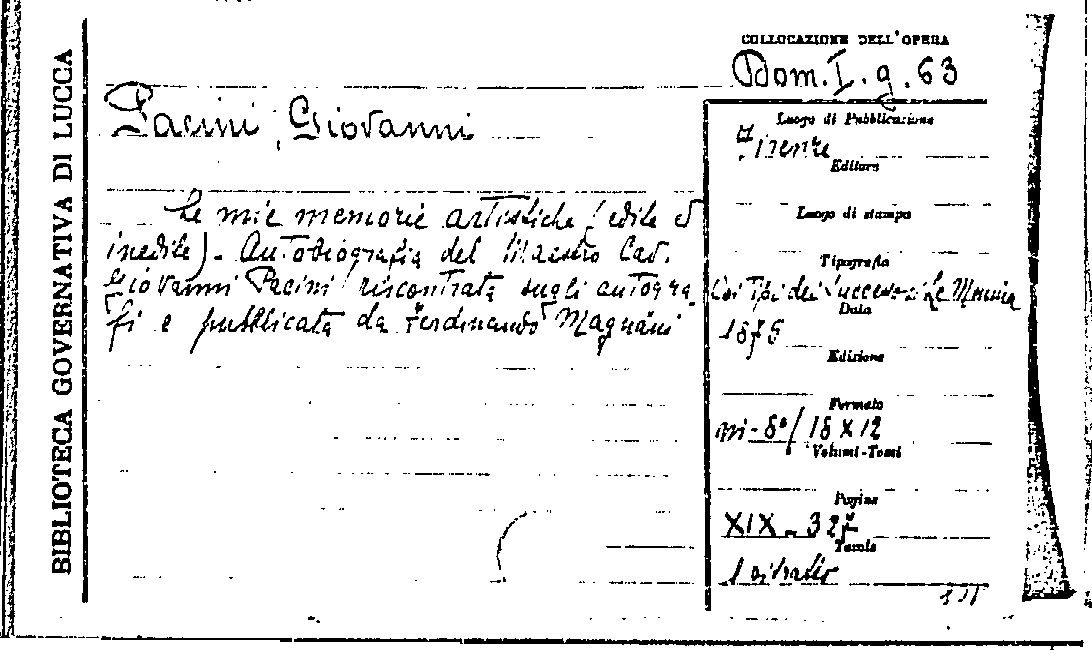 BIBLIOTECA GOVERNATIVA DI LUCCA
COLLOCAZIONE DELL'OPERA
Dom. I. g. 63
Pacini, Giovanni
Le mie memorie artistiche (edite ed
inedite). Autobiografia del Maestro Cav.
Giovanni Pacini riscontrata sugli autogra
fi e pubblicata da Ferdinando Magnani
Luogo di Pubblicazione
Firenze
Editore
Luogo di stampa
Tipografia
Coi tipi dei Successori Le Monnier
Data
1875
Edizione
Formato
in-8°/ 18 x 12
Volumi-Tomi
Pagine
XIX - 327
Tavole
1 ritratto